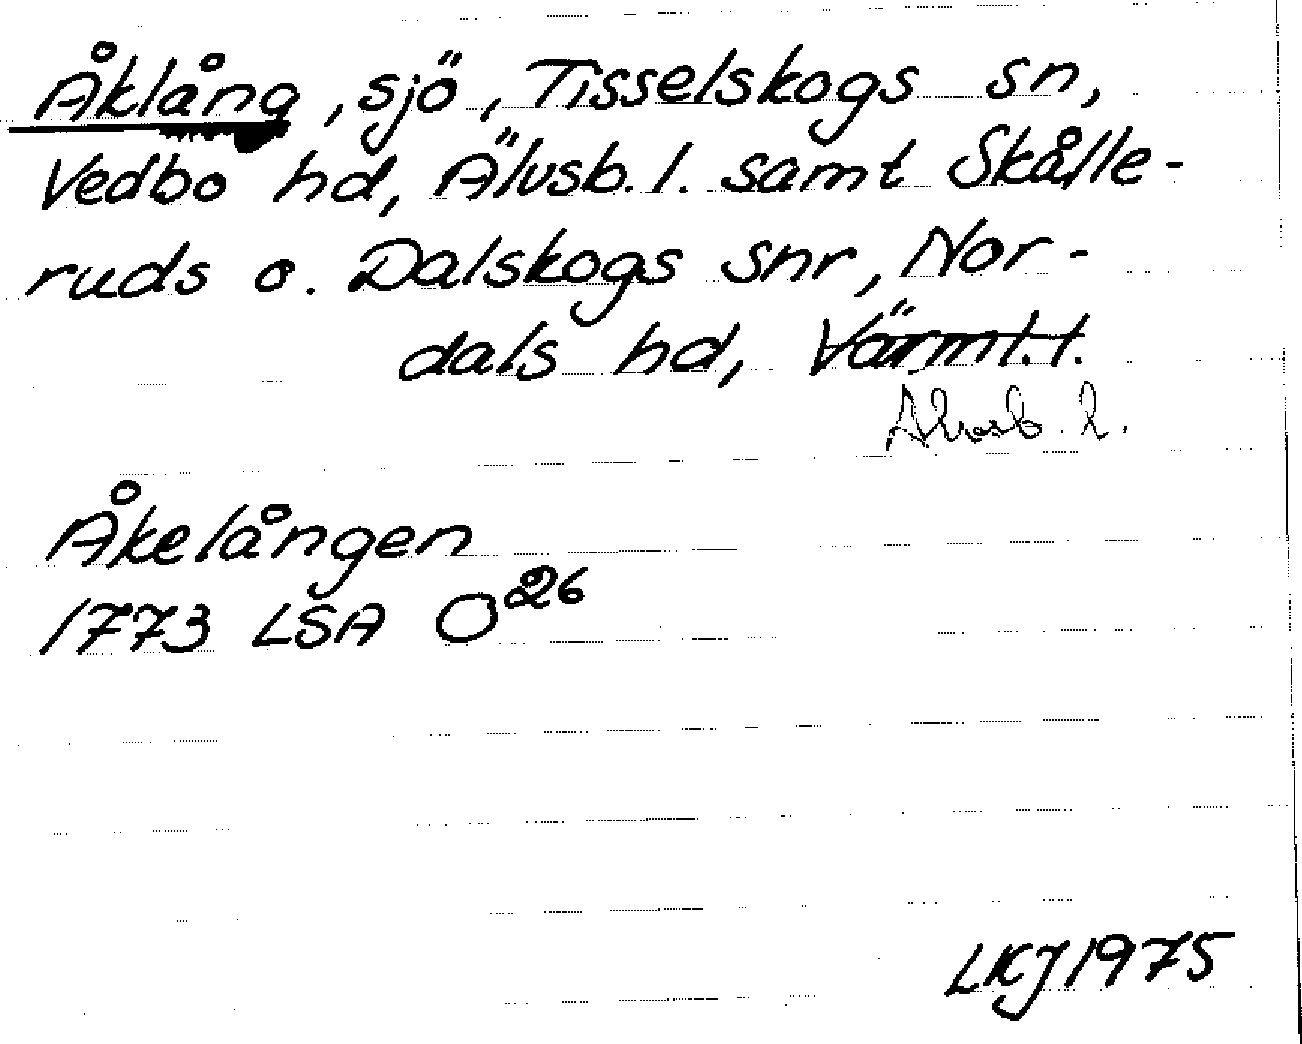 Åklång, sjö, Tisselskogs sn,
Vedbo hd, Älvsb. l. samt Skålle-
ruds o. Dalskogs snr, Nor-
dals hd, Värml. l.
Älvsb. l.
Åkelången
1773 LSA O26
LKJ 1975